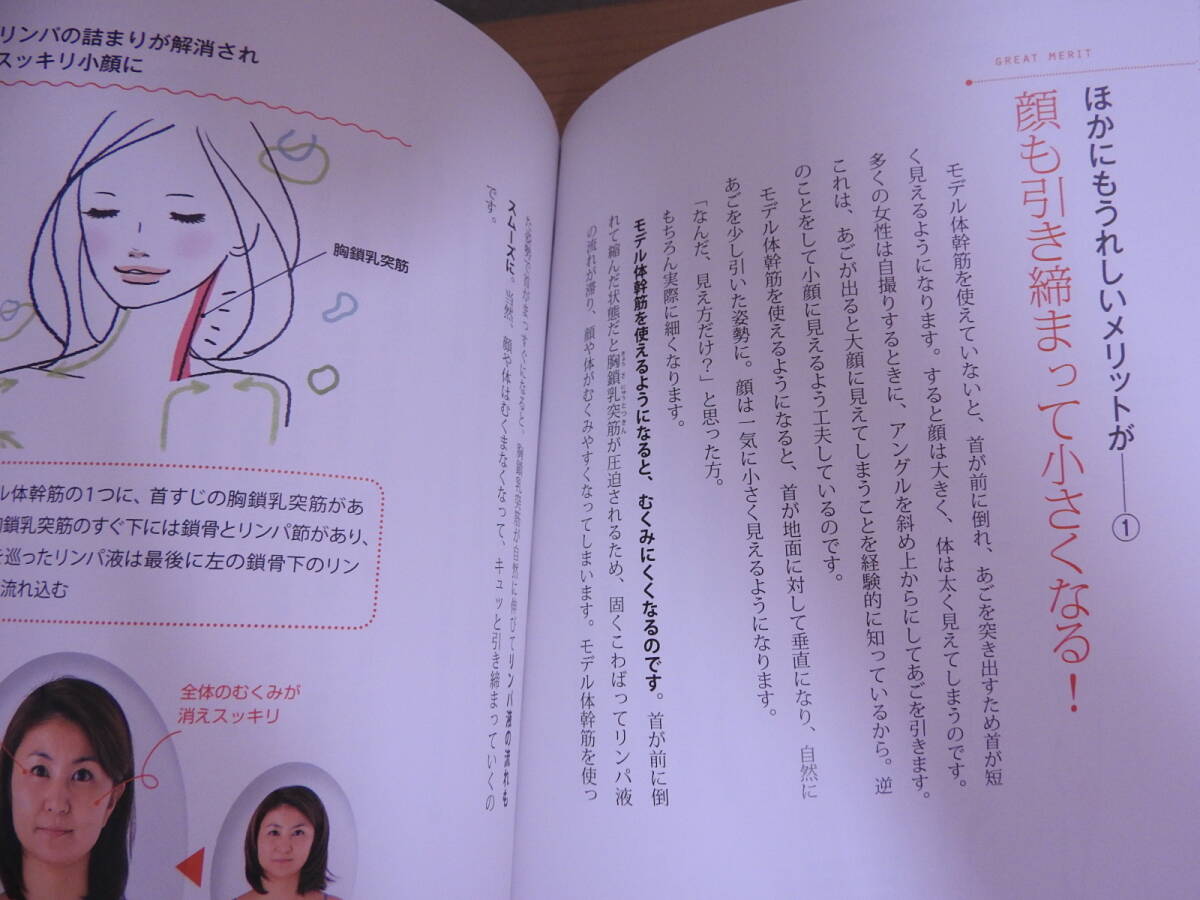 GREAT MERIT
ほかにもうれしいメリットが――①
顔も引き締まって小さくなる！
モデル体幹筋を使えていないと、首が前に倒れ、あごを突き出すため首が短
く見えるようになります。すると顔は大きく、体は太く見えてしまうのです。
多くの女性は自撮りするときに、アングルを斜め上からにしてあごを引きます。
これは、あごが出ると大顔に見えてしまうことを経験的に知っているから。逆
のことをして小顔に見えるよう工夫しているのです。
モデル体幹筋を使えるようになると、首が地面に対して垂直になり、自然に
あごを少し引いた姿勢に。顔は一気に小さく見えるようになります。
「なんだ、見え方だけ？」と思った方。
もちろん実際に細くなります。
モデル体幹筋を使えるようになると、むくみにくくなるのです。首が前に倒
れて縮んだ状態だと胸鎖乳突筋が圧迫されるため、固くこわばってリンパ液
の流れが滞り、顔や体がむくみやすくなってしまいます。モデル体幹筋を使っ
た姿勢で首がまっすぐになると、胸鎖乳突筋が自然に伸びてリンパ液の流れも
スムーズに。当然、顔や体はむくまなくなって、キュッと引き締まっていくの
です。
リンパの詰まりが解消され
スッキリ小顔に
胸鎖乳突筋
ル体幹筋の1つに、首すじの胸鎖乳突筋があ
鎖乳突筋のすぐ下には鎖骨とリンパ節があり、
を巡ったリンパ液は最後に左の鎖骨下のリン
流れ込む
全体のむくみが
消えスッキリ